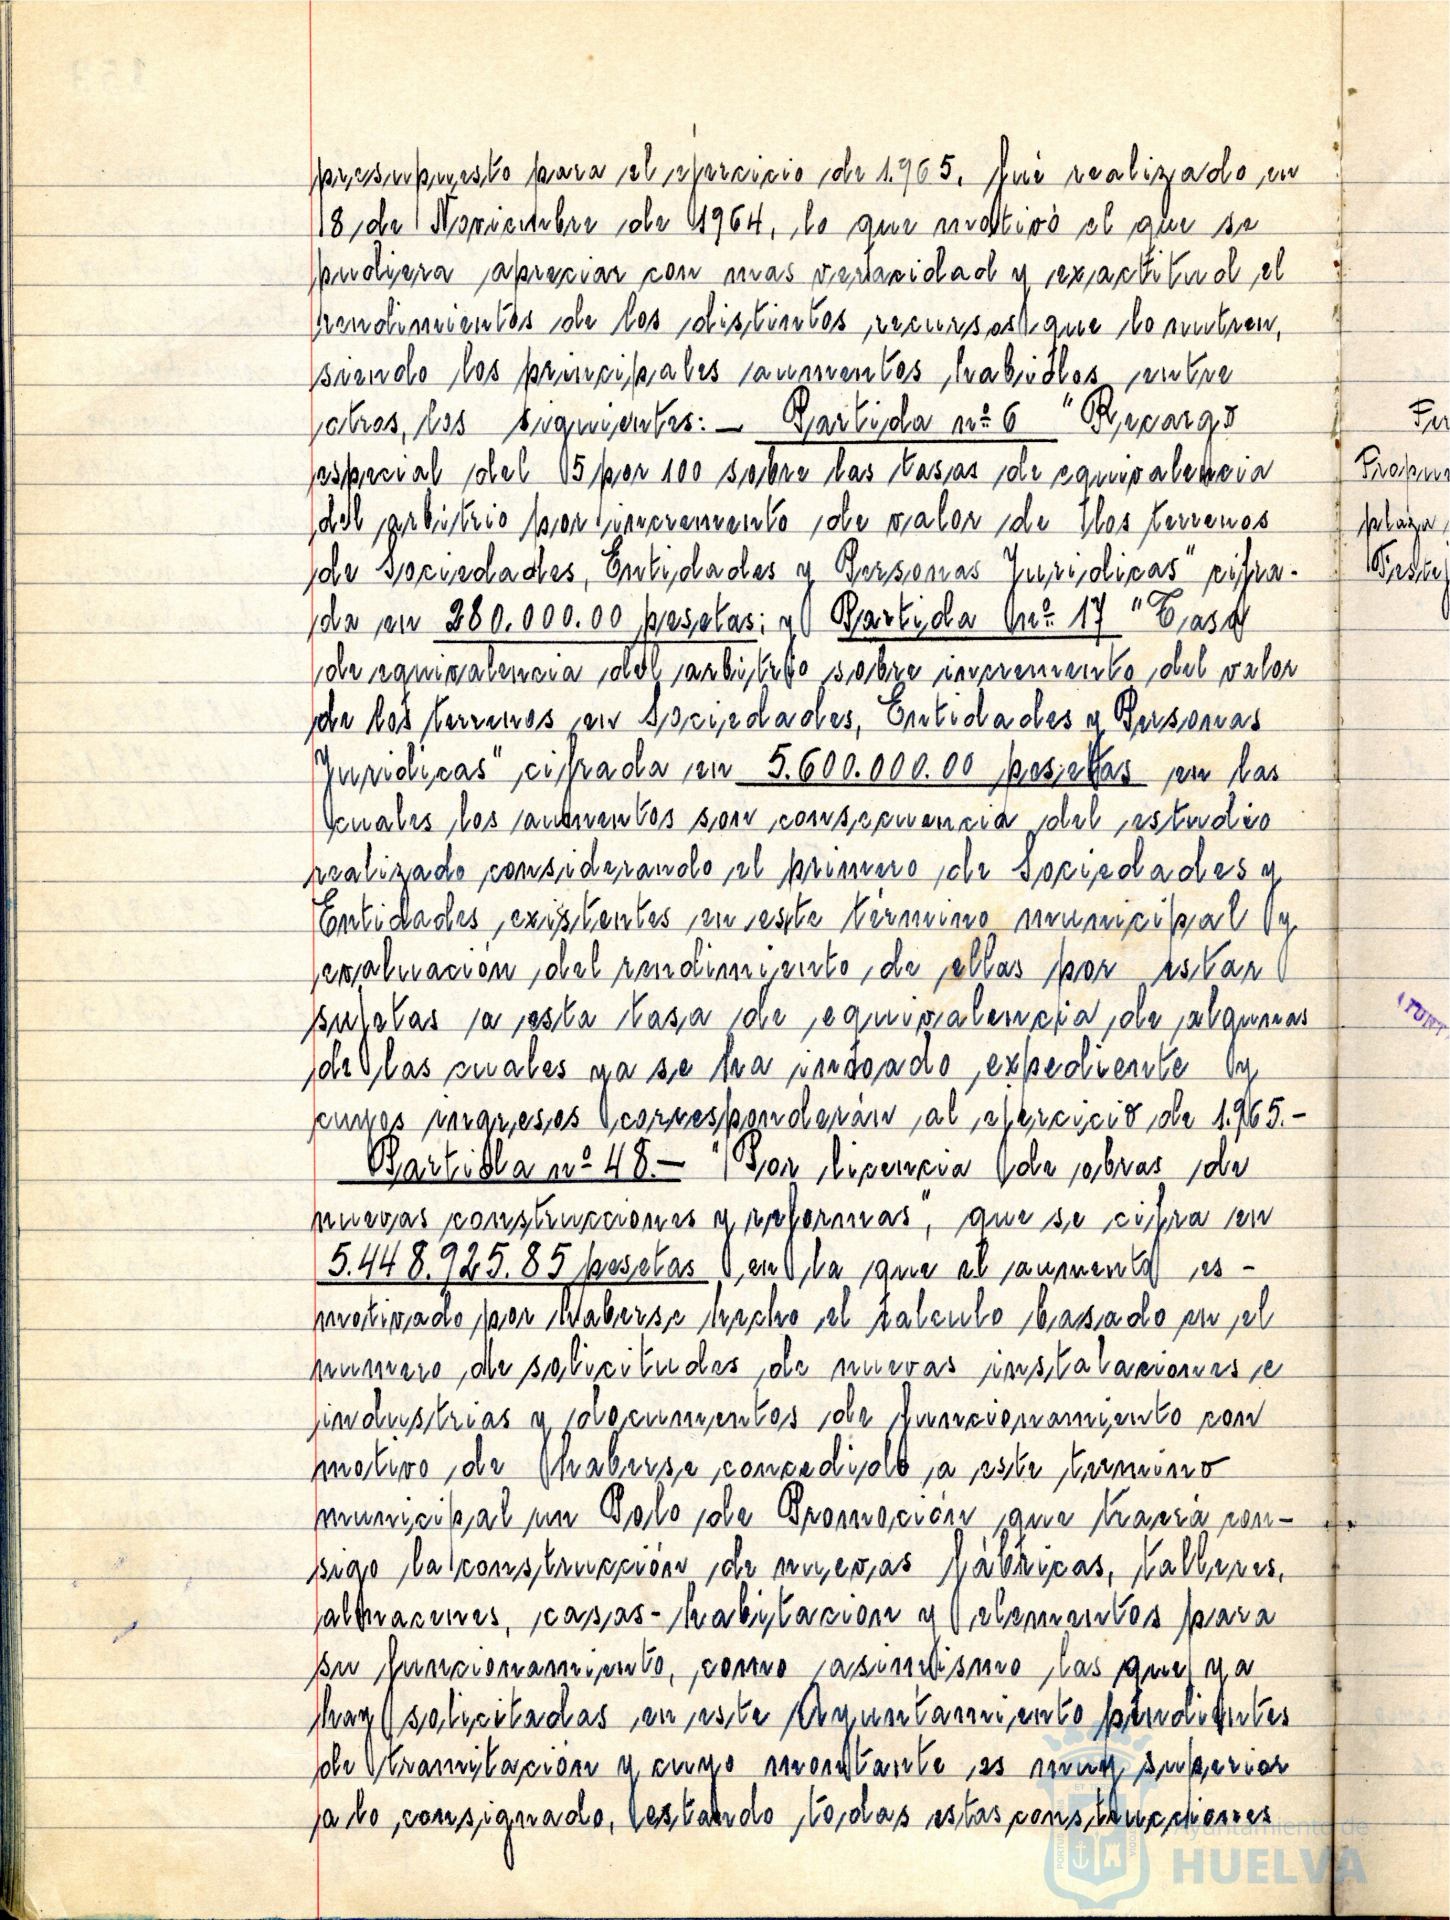 presupuesto para el ejercicio de 1.965. fué realizado en
18 de Noviembre de 1964, lo que motivó el que se
pudiera apreciar con mas veracidad y exactitud el
rendimientos de los distintos recursos que lo nutren,
siendo los principales aumentos habidos entre
otros, los siguientes: — Partida nº 6 "Recargo
especial del 5 por 100 sobre las tasas de equivalencia
del arbitrio por incremento de valor de los terrenos
de Sociedades, Entidades y Personas Juridicas" cifra-
da en 280.000.00 pesetas; y Partida nº 17 "Tasa
de equivalencia del arbitrio sobre incremento del valor
de los terrenos en Sociedades, Entidades y Personas
Juridicas" cifrada en 5.600.000.00 pesetas en las
cuales los aumentos son consecuencia del estudio
realizado considerando el primero de Sociedades y
Entidades existentes en este término municipal y
evaluación del rendimiento de ellas por estar
sujetas a esta tasa de equivalencia de algunas
de las cuales ya se ha incoado expediente y
cuyos ingresos corresponderán al ejercicio de 1.965.-
Partida nº 48.— "Por licencia de obras de
nuevas construcciones y reformas", que se cifra en
5.448.925.85 pesetas en la que el aumento es -
motivado por haberse hecho el calculo basado en el
numero de solicitudes de nuevas instalaciones e
industrias y documentos de funcionamiento con
motivo de haberse concedido a este termino
municipal un Polo de Promoción que traerá con-
sigo la construcción de nuevas fábricas, talleres,
almacenes, casas-habitacion y elementos para
su funcionamiento, como asimismo las que ya
hay solicitadas en este Ayuntamiento pendientes
de tramitación y cuyo montante es muy superior
a lo consignado, estando todas estas construcciones
Ayuntamiento de
HUELVA